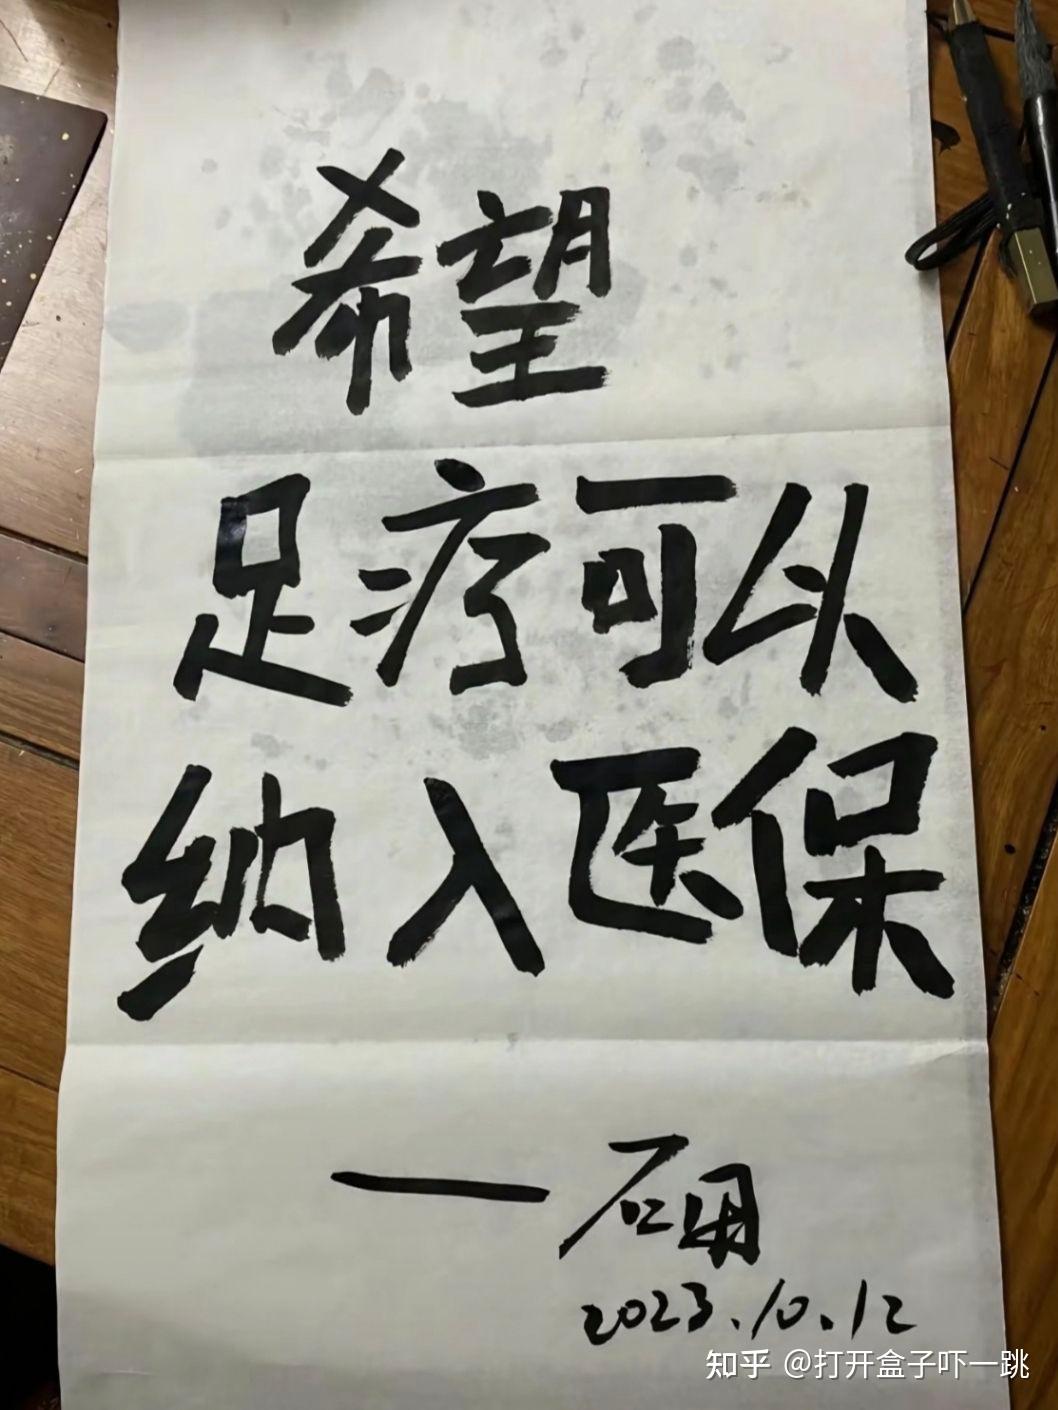 希望
足疗可以
纳入医保
—石
2023.10.12
知乎 @打开盒子吓一跳